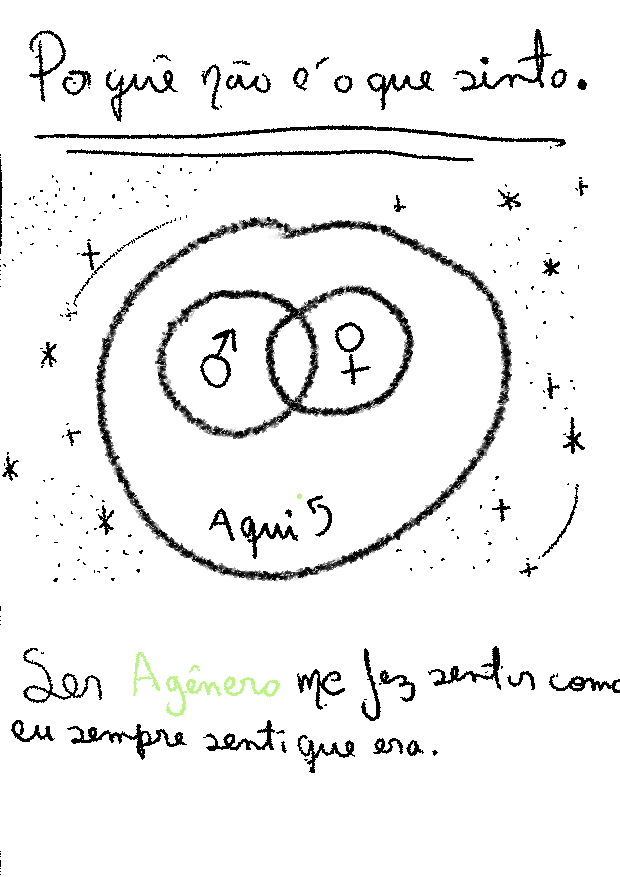 Poquê não é o que sinto.
♂ ♀
Aqui 5
Ser Agênero me fez sentir como
eu sempre senti que era.